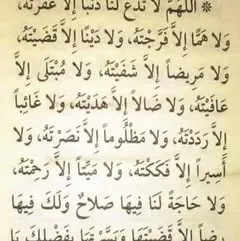 ❊ اللَّهُمَّ لَا تَدَعْ لَنَا ذَنْبًا إِلَّا غَفَرْتَهُ،
وَلَا هَمًّا إِلَّا فَرَّجْتَهُ، وَلَا دَيْنًا إِلَّا قَضَيْتَهُ،
وَلَا مَرِيضاً إِلَّا شَفَيْتَهُ، وَلَا مُبْتَلًى إِلَّا
عَافَيْتَهُ، وَلَا ضَالاًّ إِلَّا هَدَيْتَهُ، وَلَا غَائِباً
إِلَّا رَدَدْتَهُ، وَلَا مَظْلُوماً إِلَّا نَصَرْتَهُ، وَلَا
أَسِيراً إِلَّا فَكَكْتَهُ، وَلَا مَيِّتاً إِلَّا رَحِمْتَهُ،
وَلَا حَاجَةً لَنَا فِيهَا صَلَاحٌ وَلَكَ فِيهَا
رِضاً إِلَّا قَضَيْتَهَا وَيَسَّرْتَهَا بِفَضْلِكَ يَا